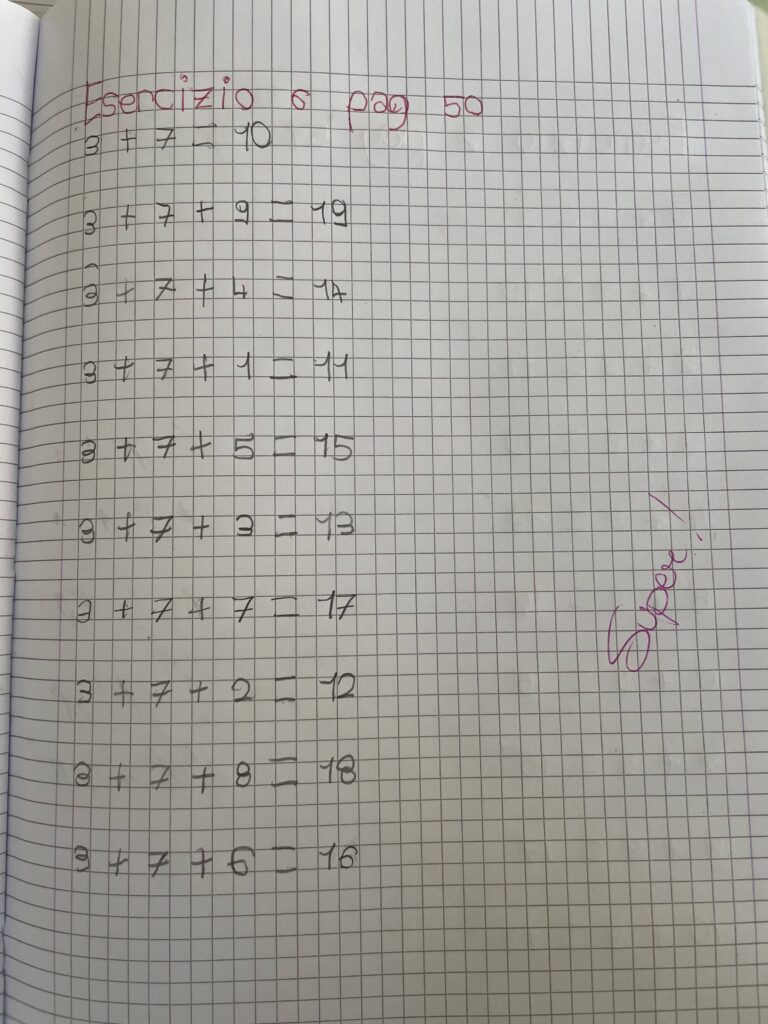 Esercizio 6 pag 50
3 + 7 = 10
3 + 7 + 9 = 19
3 + 7 + 4 = 14
3 + 7 + 1 = 11
3 + 7 + 5 = 15
3 + 7 + 3 = 13
3 + 7 + 7 = 17
3 + 7 + 2 = 12
3 + 7 + 8 = 18
3 + 7 + 6 = 16
Super!